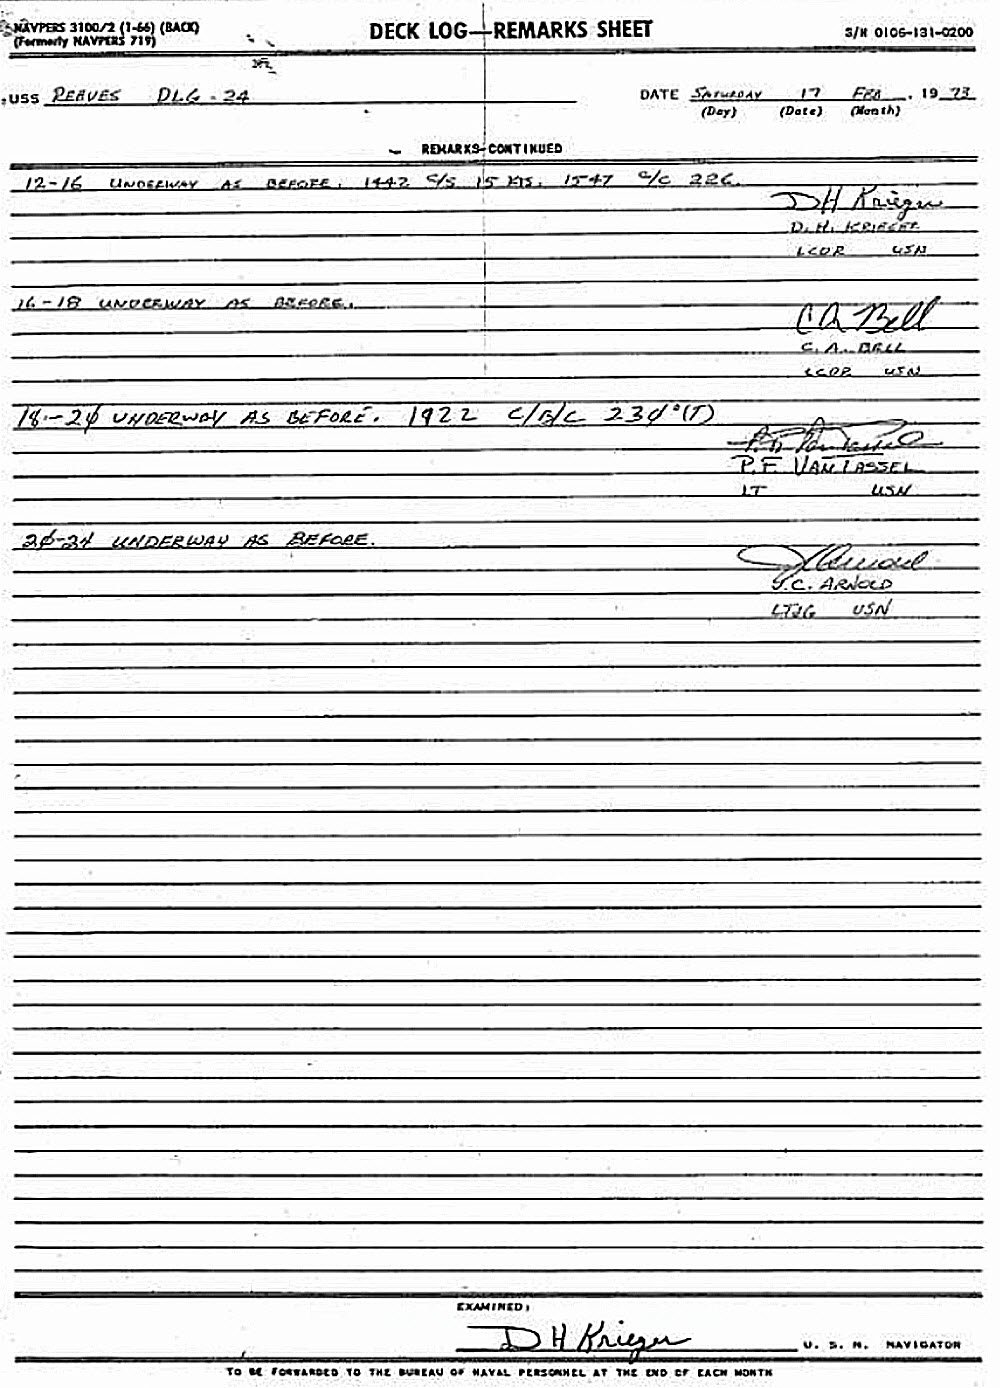 NAVPERS 3100/2 (1-66) (BACK)
(Formerly NAVPERS 719)
DECK LOG—REMARKS SHEET
S/N 0106-131-0200
USS REEVES DLG-24
DATE SATURDAY 17 FEB, 19 73
(Day) (Date) (Month)
REMARKS-CONTINUED
12-16 UNDERWAY AS BEFORE. 1442 C/S 15 KTS. 1547 C/C 226.
DH Krieger
D. H. KRIEGER
LCDR USN
16-18 UNDERWAY AS BEFORE.
CA Bell
C. A. BELL
LCDR USN
18-2Ø UNDERWAY AS BEFORE. 1922 C/B/C 23Ø°(T)
P.F. VAN TASSEL
LT USN
2Ø-24 UNDERWAY AS BEFORE.
J.C. ARNOLD
LTJG USN
EXAMINED:
DH Krieger
U. S. N. NAVIGATOR
TO BE FORWARDED TO THE BUREAU OF NAVAL PERSONNEL AT THE END OF EACH MONTH